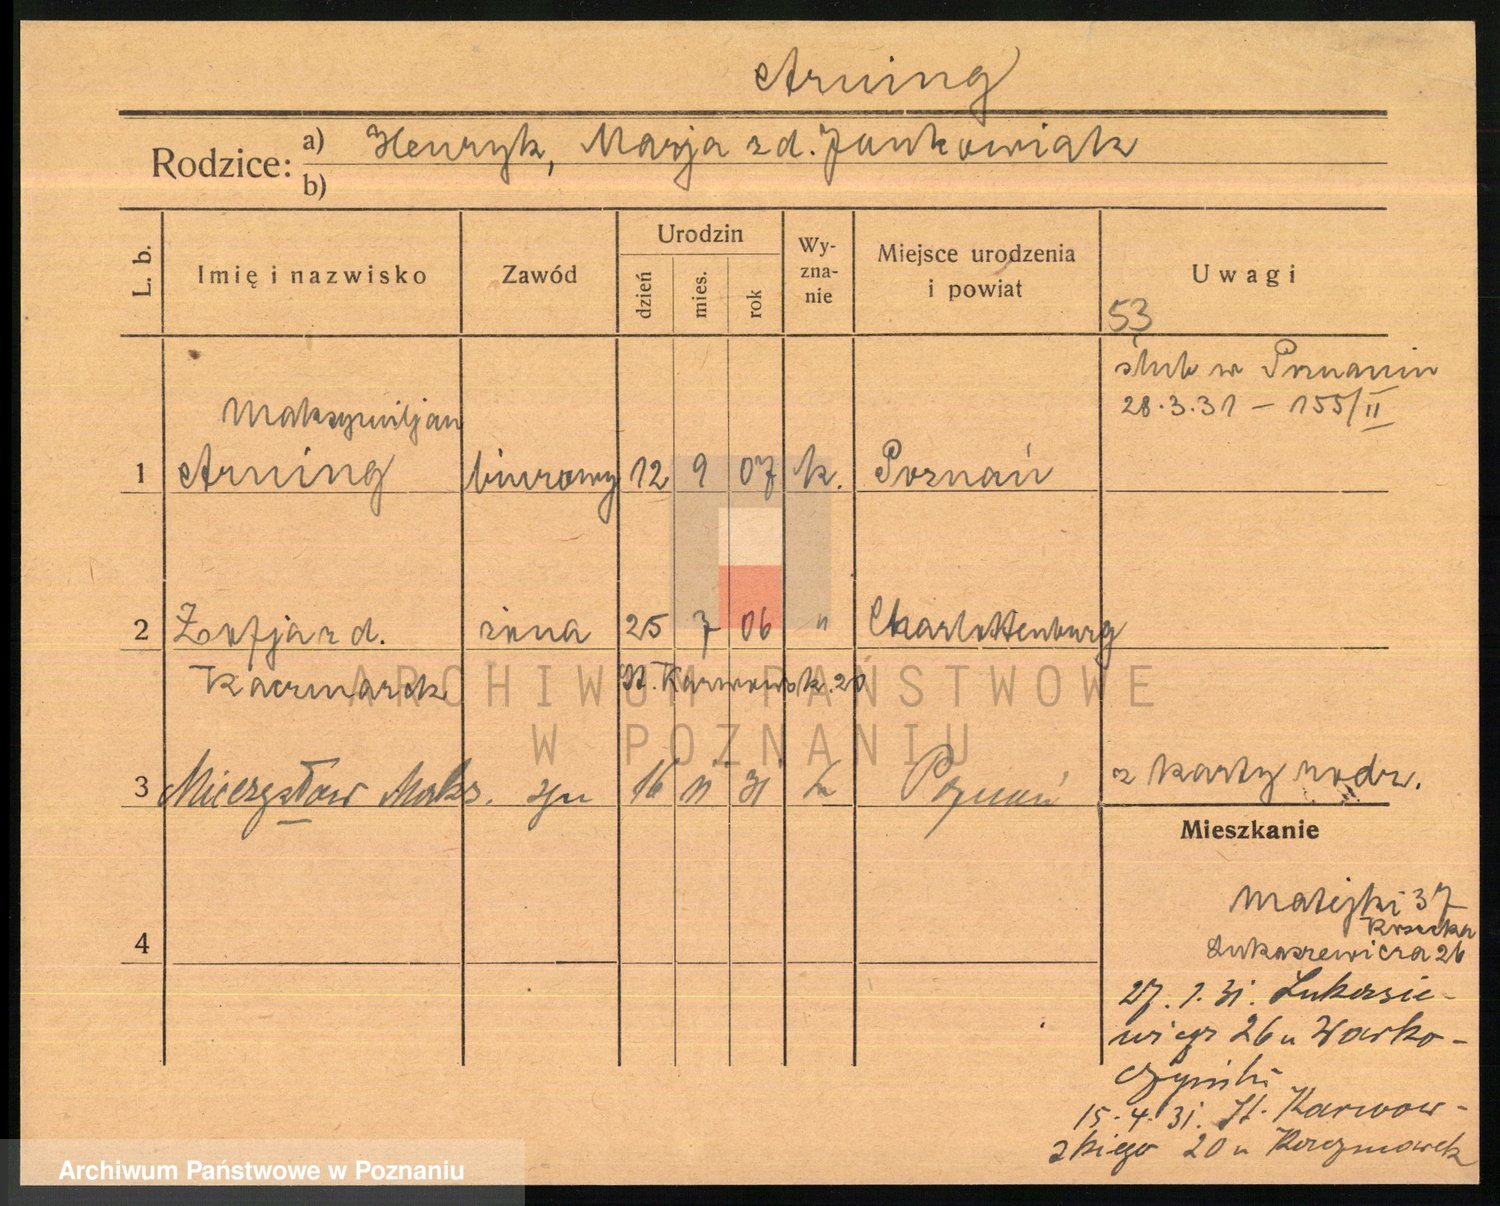 Arning
Rodzice: a) Henryk, Marja z d. Jankowiak
b)
L. b.
Imię i nazwisko
Zawód
Urodzin
dzień
mies.
rok
Wy-
zna-
nie
Miejsce urodzenia
i powiat
Uwagi
53
ślub w Poznaniu
28.3.31 – 155/II
Maksymiljan
1 Arning biurowy 12 9 07 k. Poznań
2 Zofja z d. żona 25 7 06 " Charlottenburg
Kaczmarek St. Karwowsk. 20
ARCHIWUM PAŃSTWOWE
W POZNANIU
3 Mieczysław Maks. syn 16 11 31 k Poznań z karty rodz.
Mieszkanie
4
Matejki 37
Łukaszewicza 26
27. 1. 31. Łukasie-
wicza 26 u Warko-
czyński
15.4.31. St. Karwow-
skiego 20 u Kaczmarek
Archiwum Państwowe w Poznaniu